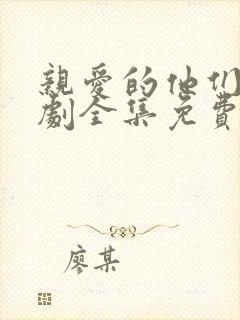 親愛的他们
劇全集免費
廖某